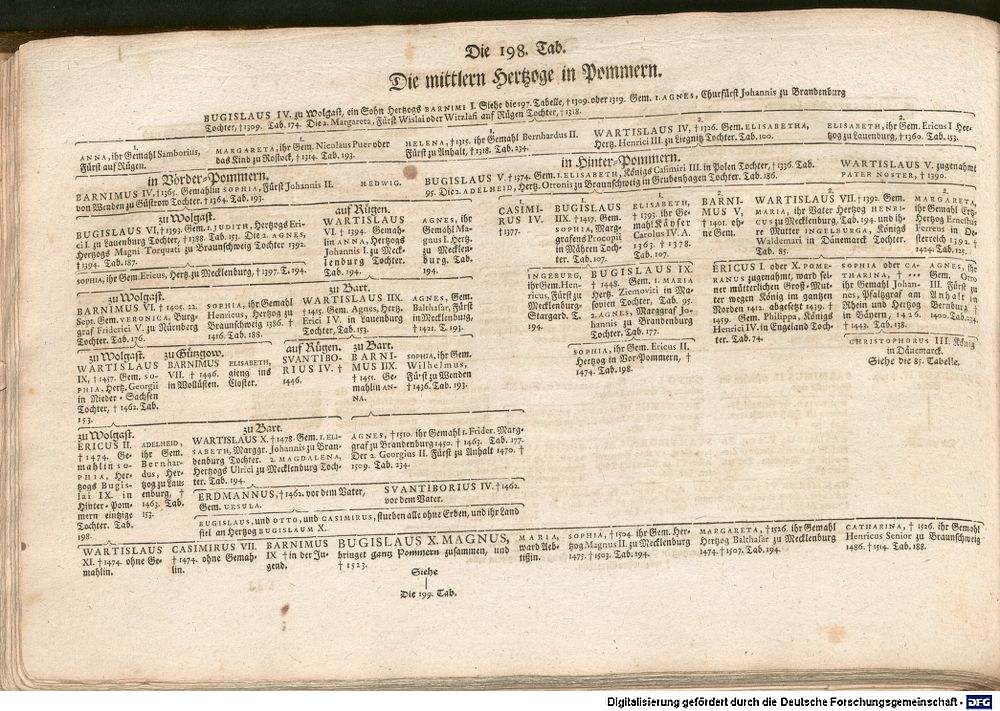 Die 198. Tab.
Die mittlern Hertzoge in Pommern.
BUGISLAUS IV. zu Wolgast, ein Sohn Hertzogs BARNIMI I. Siehe die 197. Tabelle, † 1309. oder 1319. Gem. 1. AGNES, Churfürst Johannis zu Brandenburg
Tochter, † 1309. Tab. 174. Die 2. Margareta, Fürst Wislai oder Witzlafi auf Rügen Tochter, † 1318.
1.
ANNA, ihr Gemahl Samborius,
Fürst auf Rügen.
1.
MARGARETA, ihr Gem. Nicolaus Puer oder
das Kind zu Rostock, † 1314. Tab. 193.
1.
HELENA, † 1315. ihr Gemahl Bernhardus II.
Fürst zu Anhalt, † 1318. Tab. 234.
2.
WARTISLAUS IV. † 1326. Gem. ELISABETHA,
Hertz. Henrici III. zu Liegnitz Tochter. Tab. 100.
2.
ELISABETH, ihr Gem. Ericus I Her-
tzog zu Lauenburg, † 1360. Tab. 153.
in Vörder-Pommern.
BARNIMUS IV. † 1365. Gemahlin SOPHIA, Fürst Johannis II.
von Wenden zu Güstrow Tochter. † 1364. Tab. 193.
HEDWIG.
in Hinter-Pommern.
BUGISLAUS V. † 1374. Gem. 1. ELISABETH, Königs Casimiri III. in Polen Tochter, † 1336. Tab.
95. Die 2. ADELHEID, Hertz. Ottonis zu Braunschweig in Grubenhagen Tochter. Tab. 186.
WARTISLAUS V. zugenahmt
PATER NOSTER, † 1390.
zu Wolgast.
BUGISLAUS VI. † 1393. Gem. 1. JUDITH, Hertzogs Eri-
ci I. zu Lauenburg Tochter, † 1388. Tab. 153. Die 2. AGNES,
Hertzogs Magni Torquati zu Braunschweig Tochter 1392.
† 1394. Tab. 187.
SOPHIA, ihr Gem. Ericus, Hertz. zu Mecklenburg, † 1397. T. 194.
auf Rügen.
WARTISLAUS
VI. † 1394. Gemah-
lin ANNA, Hertzogs
Johannis I. zu Meck-
lenburg Tochter.
Tab. 194.
AGNES, ihr
Gemahl Ma-
gnus I. Hertz.
zu Mecklen-
burg. Tab.
194.
1.
CASIMI-
RIUS IV.
† 1377.
1.
BUGISLAUS
IIX. † 1417. Gem.
SOPHIA, Marg-
grafens Procopii
in Mähren Toch-
ter. Tab. 107.
1.
ELISABETH,
† 1393. ihr Ge-
mahl Käyser
Carolus IV. A.
1363. † 1378.
Tab. 107.
2.
BARNI-
MUS V.
† 1401. oh-
ne Gem.
2.
WARTISLAUS VII. † 1392. Gem.
MARIA, ihr Vater Hertzog HENRI-
CUS zu Mecklenburg, Tab. 194. und ih-
re Mutter INGELBURGA, Königs
Waldemari in Dänemarck Tochter.
Tab. 85.
2.
MARGARETA,
ihr Gemahl Ertz-
Hertzog Ernestus
Ferreus in Oe-
sterreich 1392. †
1424. Tab. 125.
zu Wolgast.
BARNIMUS VI. † 1405. 22.
Sept. Gem. VERONICA, Burg-
graf Friderici V. zu Nürnberg
Tochter. Tab. 176.
SOPHIA, ihr Gemahl
Henricus, Hertzog zu
Braunschweig 1386. †
1416. Tab. 188.
zu Bart.
WARTISLAUS IIX.
† 1415. Gem. Agnes, Hertz.
Erici IV. in Lauenburg
Tochter, Tab. 153.
AGNES, Gem.
Balthasar, Fürst
in Mecklenburg,
† 1421. T. 193.
INGEBURG,
ihr Gem. Hen-
ricus, Fürst zu
Mecklenburg-
Stargard. T.
194.
BUGISLAUS IX.
† 1448. Gem. 1. MARIA
Hertz. Ziemoviti in Ma-
sovien Tochter, Tab. 95.
2. AGNES, Marggraf Jo-
hannis zu Brandenburg
Tochter. Tab. 177.
SOPHIA, ihr Gem. Ericus II.
Hertzog in Vor-Pommern, †
1474. Tab. 198.
ERICUS I. oder X. POME-
RANUS zugenahmt, ward sei-
ner mütterlichen Groß-Mut-
ter wegen König im gantzen
Norden 1412. abgesetzt 1439. †
1459. Gem. Philippa, Königs
Henrici IV. in Engeland Toch-
ter. Tab. 74.
SOPHIA oder CA-
THARINA, † ...
ihr Gemahl Johan-
nes, Pfaltzgraf am
Rhein und Hertzog
in Bäyern, 1426.
† 1443. Tab. 138.
AGNES, ihr
Gem. Otto
III. Fürst in
Anhalt in
Bernburg †
1400. Tab. 234.
CHRISTOPHORUS III. König
in Dänemarck.
Siehe die 85. Tabelle.
zu Wolgast.
WARTISLAUS
IX. † 1457. Gem. SO-
PHIA, Hertz. Georgii
in Nieder-Sachsen
Tochter, † 1462. Tab.
153.
zu Gützgow.
BARNIMUS
VII. † 1446.
in Wollüsten.
ELISABETH,
gieng ins
Closter.
auf Rügen.
SVANTIBO-
RIUS IV. †
1446.
zu Bart.
BARNI-
MUS IIX.
† 1451. Ge-
mahlin AN-
NA.
SOPHIA, ihr Gem.
Wilhelmus,
Fürst zu Wenden
† 1436. Tab. 193.
zu Wolgast.
ERICUS II.
† 1474. Ge-
mahlin SO-
PHIA, Her-
tzogs Bugis-
lai IX. in
Hinter-Pom-
mern eintzige
Tochter. Tab.
198.
ADELHEID,
ihr Gem.
Bernhar-
dus, Her-
tzog zu Lau-
enburg, †
1463. Tab.
153.
zu Bart.
WARTISLAUS X. † 1478. Gem. 1. ELI-
SABETH, Marggr. Johannis zu Bran-
denburg Tochter. 2. MAGDALENA,
Hertzogs Ulrici zu Mecklenburg Toch-
ter. Tab. 194.
AGNES, † 1510. ihr Gemahl 1. Frider. Marg-
graf zu Brandenburg 1450. † 1463. Tab. 177.
Der 2. Georgius II. Fürst zu Anhalt 1470. †
1509. Tab. 234.
ERDMANNUS, † 1462. vor dem Vater,
Gem. URSULA.
SVANTIBORIUS IV. † 1462.
vor dem Vater.
BUGISLAUS, und OTTO, und CASIMIRUS, sturben alle ohne Erben, und ihr Land
fiel an Hertzog BUGISLAUM X.
WARTISLAUS
XI. † 1474. ohne Ge-
mahlin.
CASIMIRUS VII.
† 1474. ohne Gemah-
lin.
BARNIMUS
IX † in der Ju-
gend.
BUGISLAUS X. MAGNUS,
bringet gantz Pommern zusammen, und
† 1523.
MARIA,
ward Aeb-
tißin.
SOPHIA, † 1504. ihr Gem. Her-
tzog Magnus II. zu Mecklenburg
1475. † 1503. Tab. 194.
MARGARETA, † 1526. ihr Gemahl
Hertzog Balthasar zu Mecklenburg
1474. † 1507. Tab. 194.
CATHARINA, † 1526. ihr Gemahl
Henricus Senior zu Braunschweig
1486. † 1514. Tab. 188.
Siehe
Die 199. Tab.
Digitalisierung gefördert durch die Deutsche Forschungsgemeinschaft - DFG